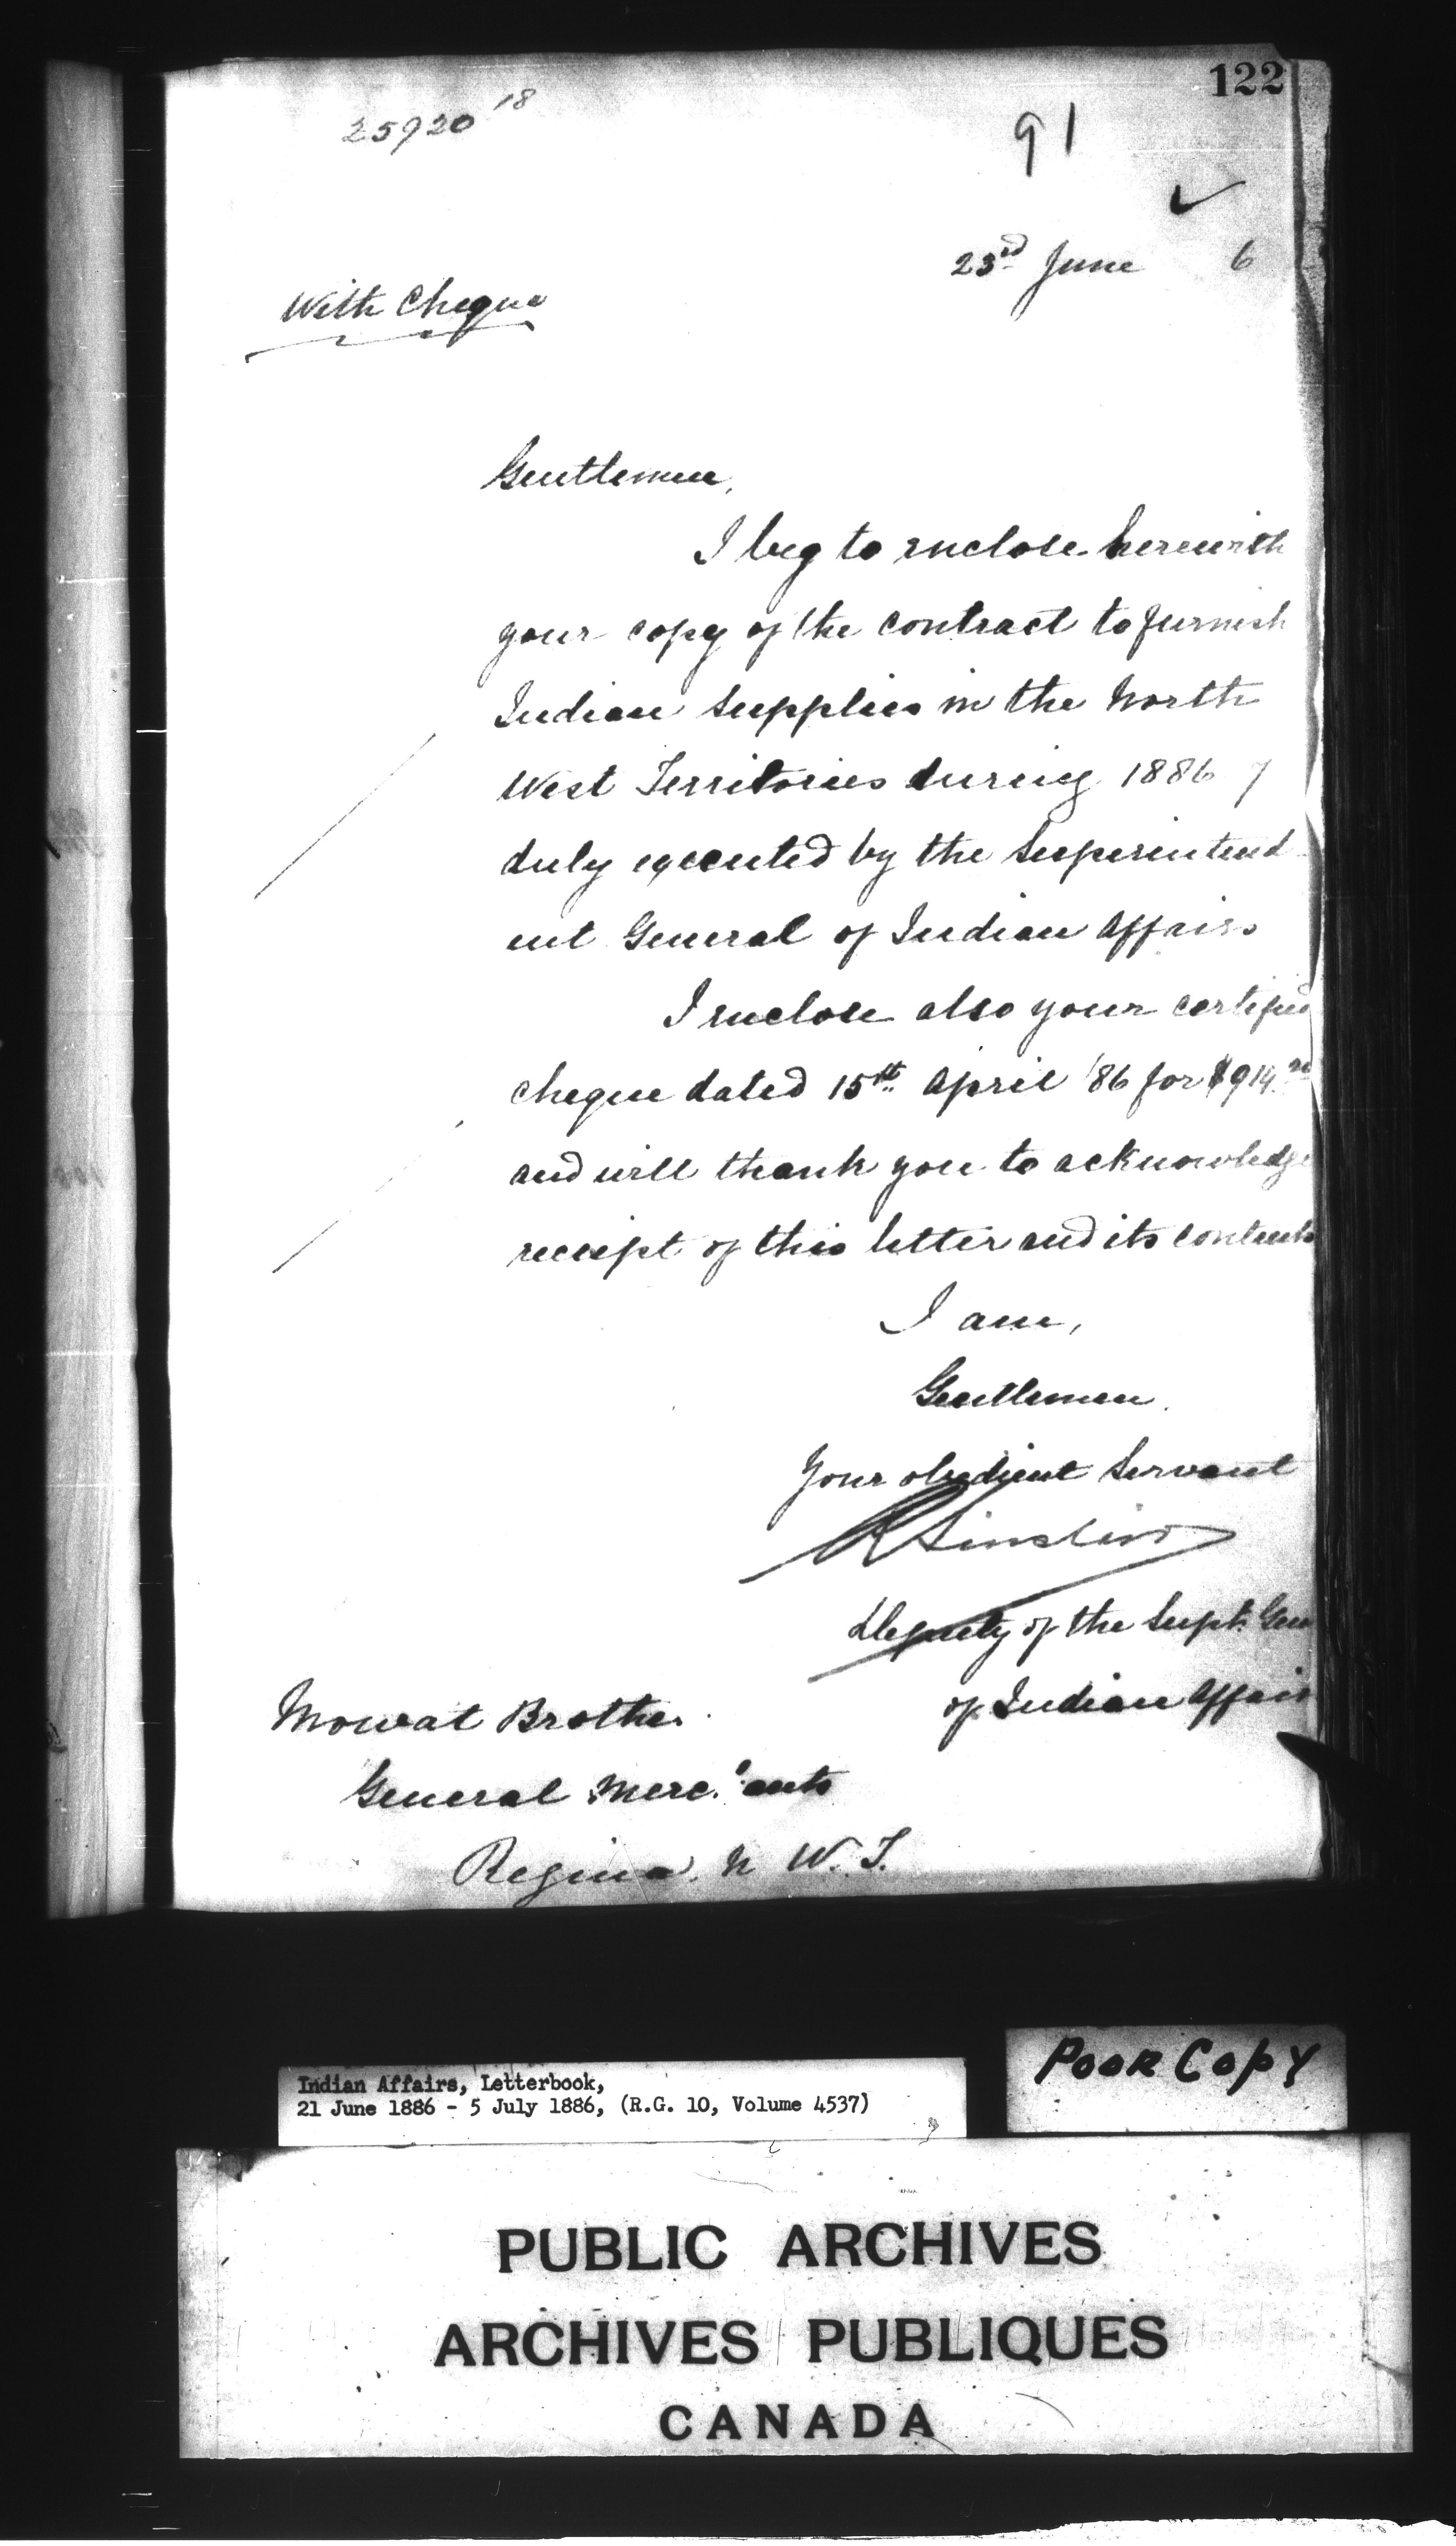 122
25920 18
91
23rd June 6
With Cheque
Gentlemen,
I beg to enclose herewith
your copy of the contract to furnish
Indian Supplies in the North
West Territories during 1886 7
duly executed by the Superintend-
ent General of Indian Affairs
I enclose also your certified
cheque dated 15th April '86 for $914.
and will thank you to acknowledge
receipt of this letter and its contents
I am,
Gentlemen.
Your obedient Servant
Deputy of the Supt. Gen
of Indian Affairs
Mowat Brothers
General Merchants
Regina. N W. T.
Indian Affairs, Letterbook,
21 June 1886 - 5 July 1886, (R.G. 10, Volume 4537)
POOR COPY
PUBLIC ARCHIVES
ARCHIVES PUBLIQUES
CANADA